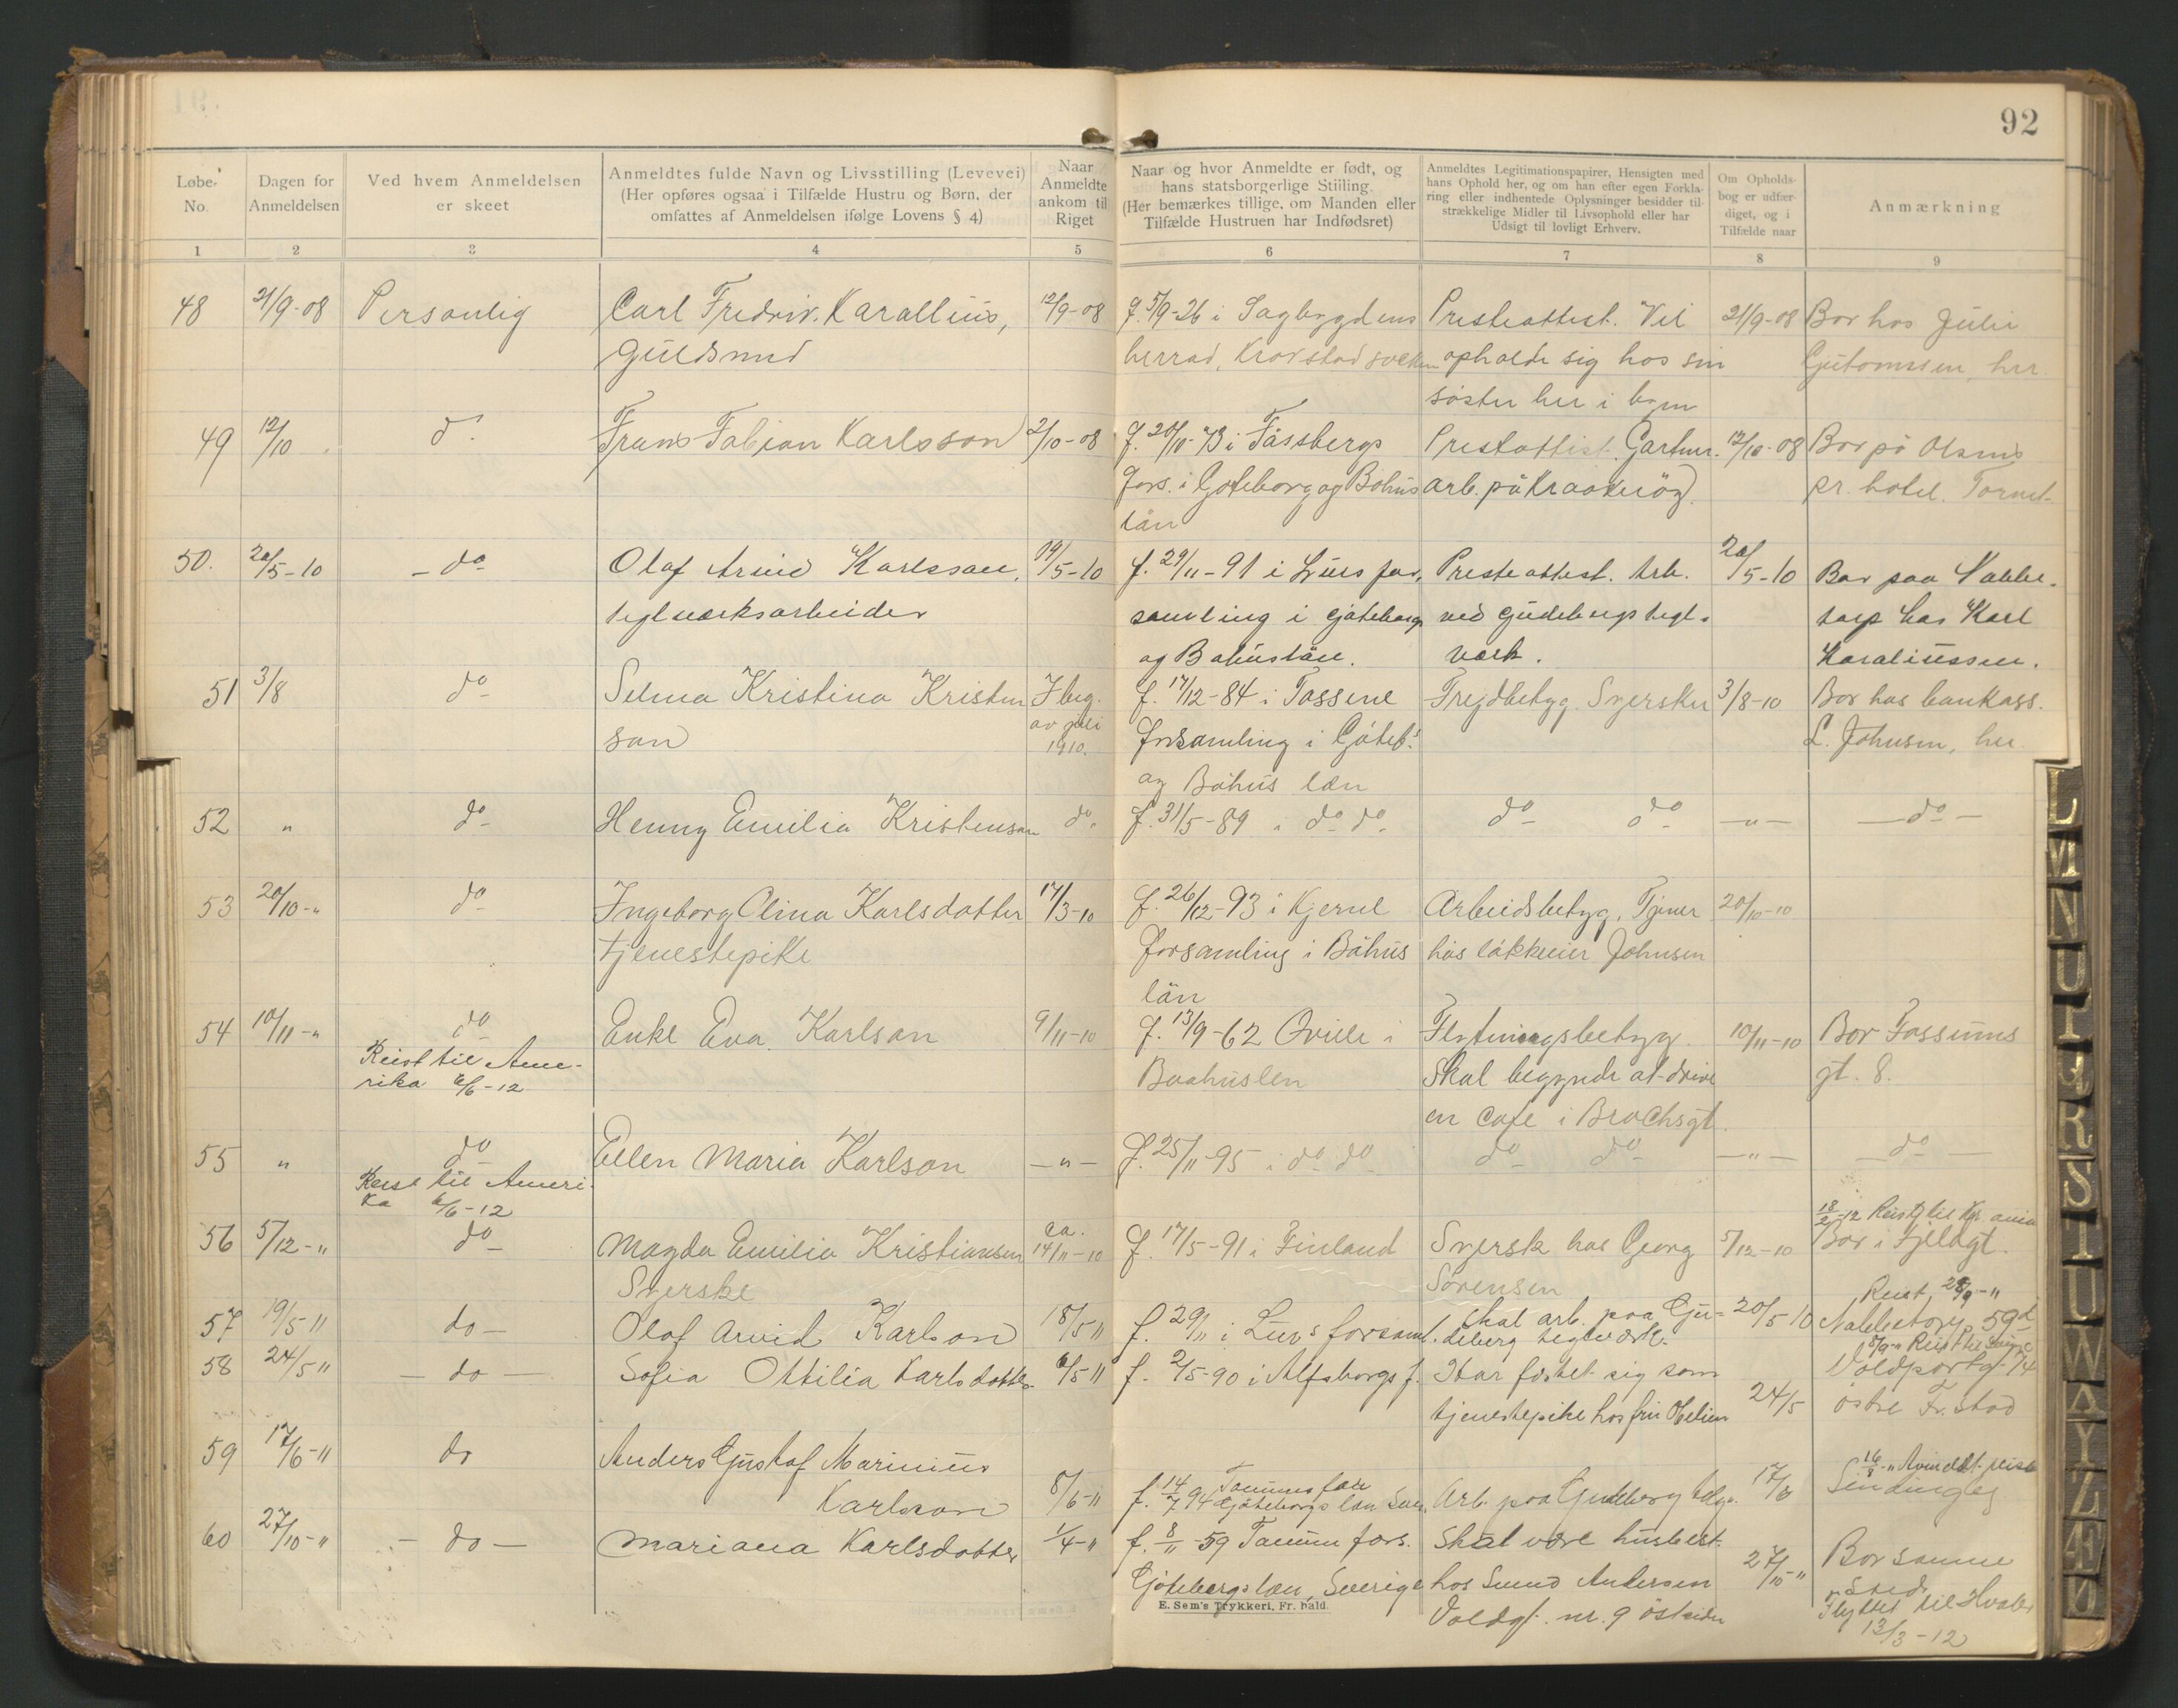 92
Løbe-No.
Dagen for Anmeldelsen
Ved hvem Anmeldelsen er skeet
Anmeldtes fulde Navn og Livsstilling (Levevei) (Her opføres ogsaa i Tilfælde Hustru og Børn, der omfattes af Anmeldelsen ifølge Lovens § 4)
Naar Anmeldte ankom til Riget
Naar og hvor Anmeldte er født, og hans statsborgerlige Stilling. (Her bemærkes tillige, om Manden eller Tilfælde Hustruen har Indfødsret)
Anmeldtes Legitimationspapirer, Hensigten med hans Ophold her, og om han efter egen Forklaring eller indhentede Oplysninger besidder tilstrækkelige Midler til Livsophold eller har Udsigt til lovligt Erhverv.
Om Opholdsbog er udfærdiget, og i Tilfælde naar
Anmærkning
1 2 3 4 5 6 7 8 9
48 21/9-08 Personlig Carl Fredrik Karallius, 12/9-08 f. 5/9-26 i Sagbygdens Presteattest. Vil 21/9-08 Bor hos Julie
Guldsmed herrad, Krokstad socken opholde sig hos sin her
søster her i byen
49 12/10 do Frans Fabian Karlsson 2/10-08 f. 20/10-73 i Fässbergs Presteattest. Gartner 12/10-08 Bor på Olsens
fors. i Gøteborg og Bohus arb. på Kraakerøy pr. hotel. Tornet
län
50. 20/5-10 - do Olaf Arvid Karlsson, 19/5-10 f. 29/11-91 i Lurs for. Presteattest. Arb. 20/5-10 Bor paa Nabbe-
teglverksarbeider samling i Gøteborgs ved Gudebergs tegl- torp hos Karl
og Bohuslän. verk. Karaliussen.
51 3/8 do Selma Kristina Kristen I beg. f. 17/12-84 i Tossene Frejdbetyg. Syerske 3/8-10 Bor hos bankass.
son av juli 1910. forsamling i Gøteb. L. Johnsen, her
og Bohus län
52 " do Henny Emilia Kristenson do. f. 31/5-89 i do do. do do -"- - do -
53 20/10-" do Ingeborg Olina Karlsdotter 17/3-10 f. 26/12-93 i Kjerne Arbeidsbetyg. Tjener 20/10-10
tjenestepike forsamling i Bohus hos løkkeeier Johnsen
län
54 10/11-" do Enke Eva Karlson 9/11-10 f. 13/9-62 Qville i Flytningsbetyg. 10/11-10 Bor Fossums
Reist til Ame- Baahuslen Skal begynde at drive gt. 8.
rika 6/6-12 en cafe i Brochsgt.
55 " do Ellen Maria Karlson -"- f. 25/11-95 i do do do do -"- do -
Reist til Ameri-
ka 6/6-12
18/2-12 Reist til Kr.ania
56 5/12-" do Magda Emilia Kristiansen ca. 14/11-10 f. 17/5-91 i Finland Syersk hos Georg 5/12-10 Bor i Fjeldgt.
Syerske Sørensen
Reist 28/9-"
57 19/5 11 do- Olof Arvid Karlson 18/5 11 f. 29/11 i Lurs forsaml. Skal arb. paa Gu- 20/5 10 Nabbetorp 59d
deberg teglverk.
58 24/5 11 - do - Sofia Ottilia Karlsdotter 6/5 11 f. 2/5-90 i Alfsborgs f. Har fæstet sig som 24/5 Voldportgt 74
tjenestepike hos fru østre Fr.stad
59 17/6-11 do Anders Gustaf Marinius
Karlson 8/6-11 f. 14/7 94 Tanums Gøteborgs län Arb. paa Gudeberg 17/6
60 27/10-" - do - Mariana Karlsdotter 1/4-" f. 8/11-59 Tanum fors. Skal være husbest. 27/10-" Bor samme
Gjøteborgs län, Sverige hos Svend Andersen sted.
Voldgt. nr. 9 østsiden Flyttet til Hvaler
13/3-12
E. Sem's Trykkeri, Fr.hald.
L
M
N
O
P
Q
R
S
T
U
W
Y
Z
Æ
Ø